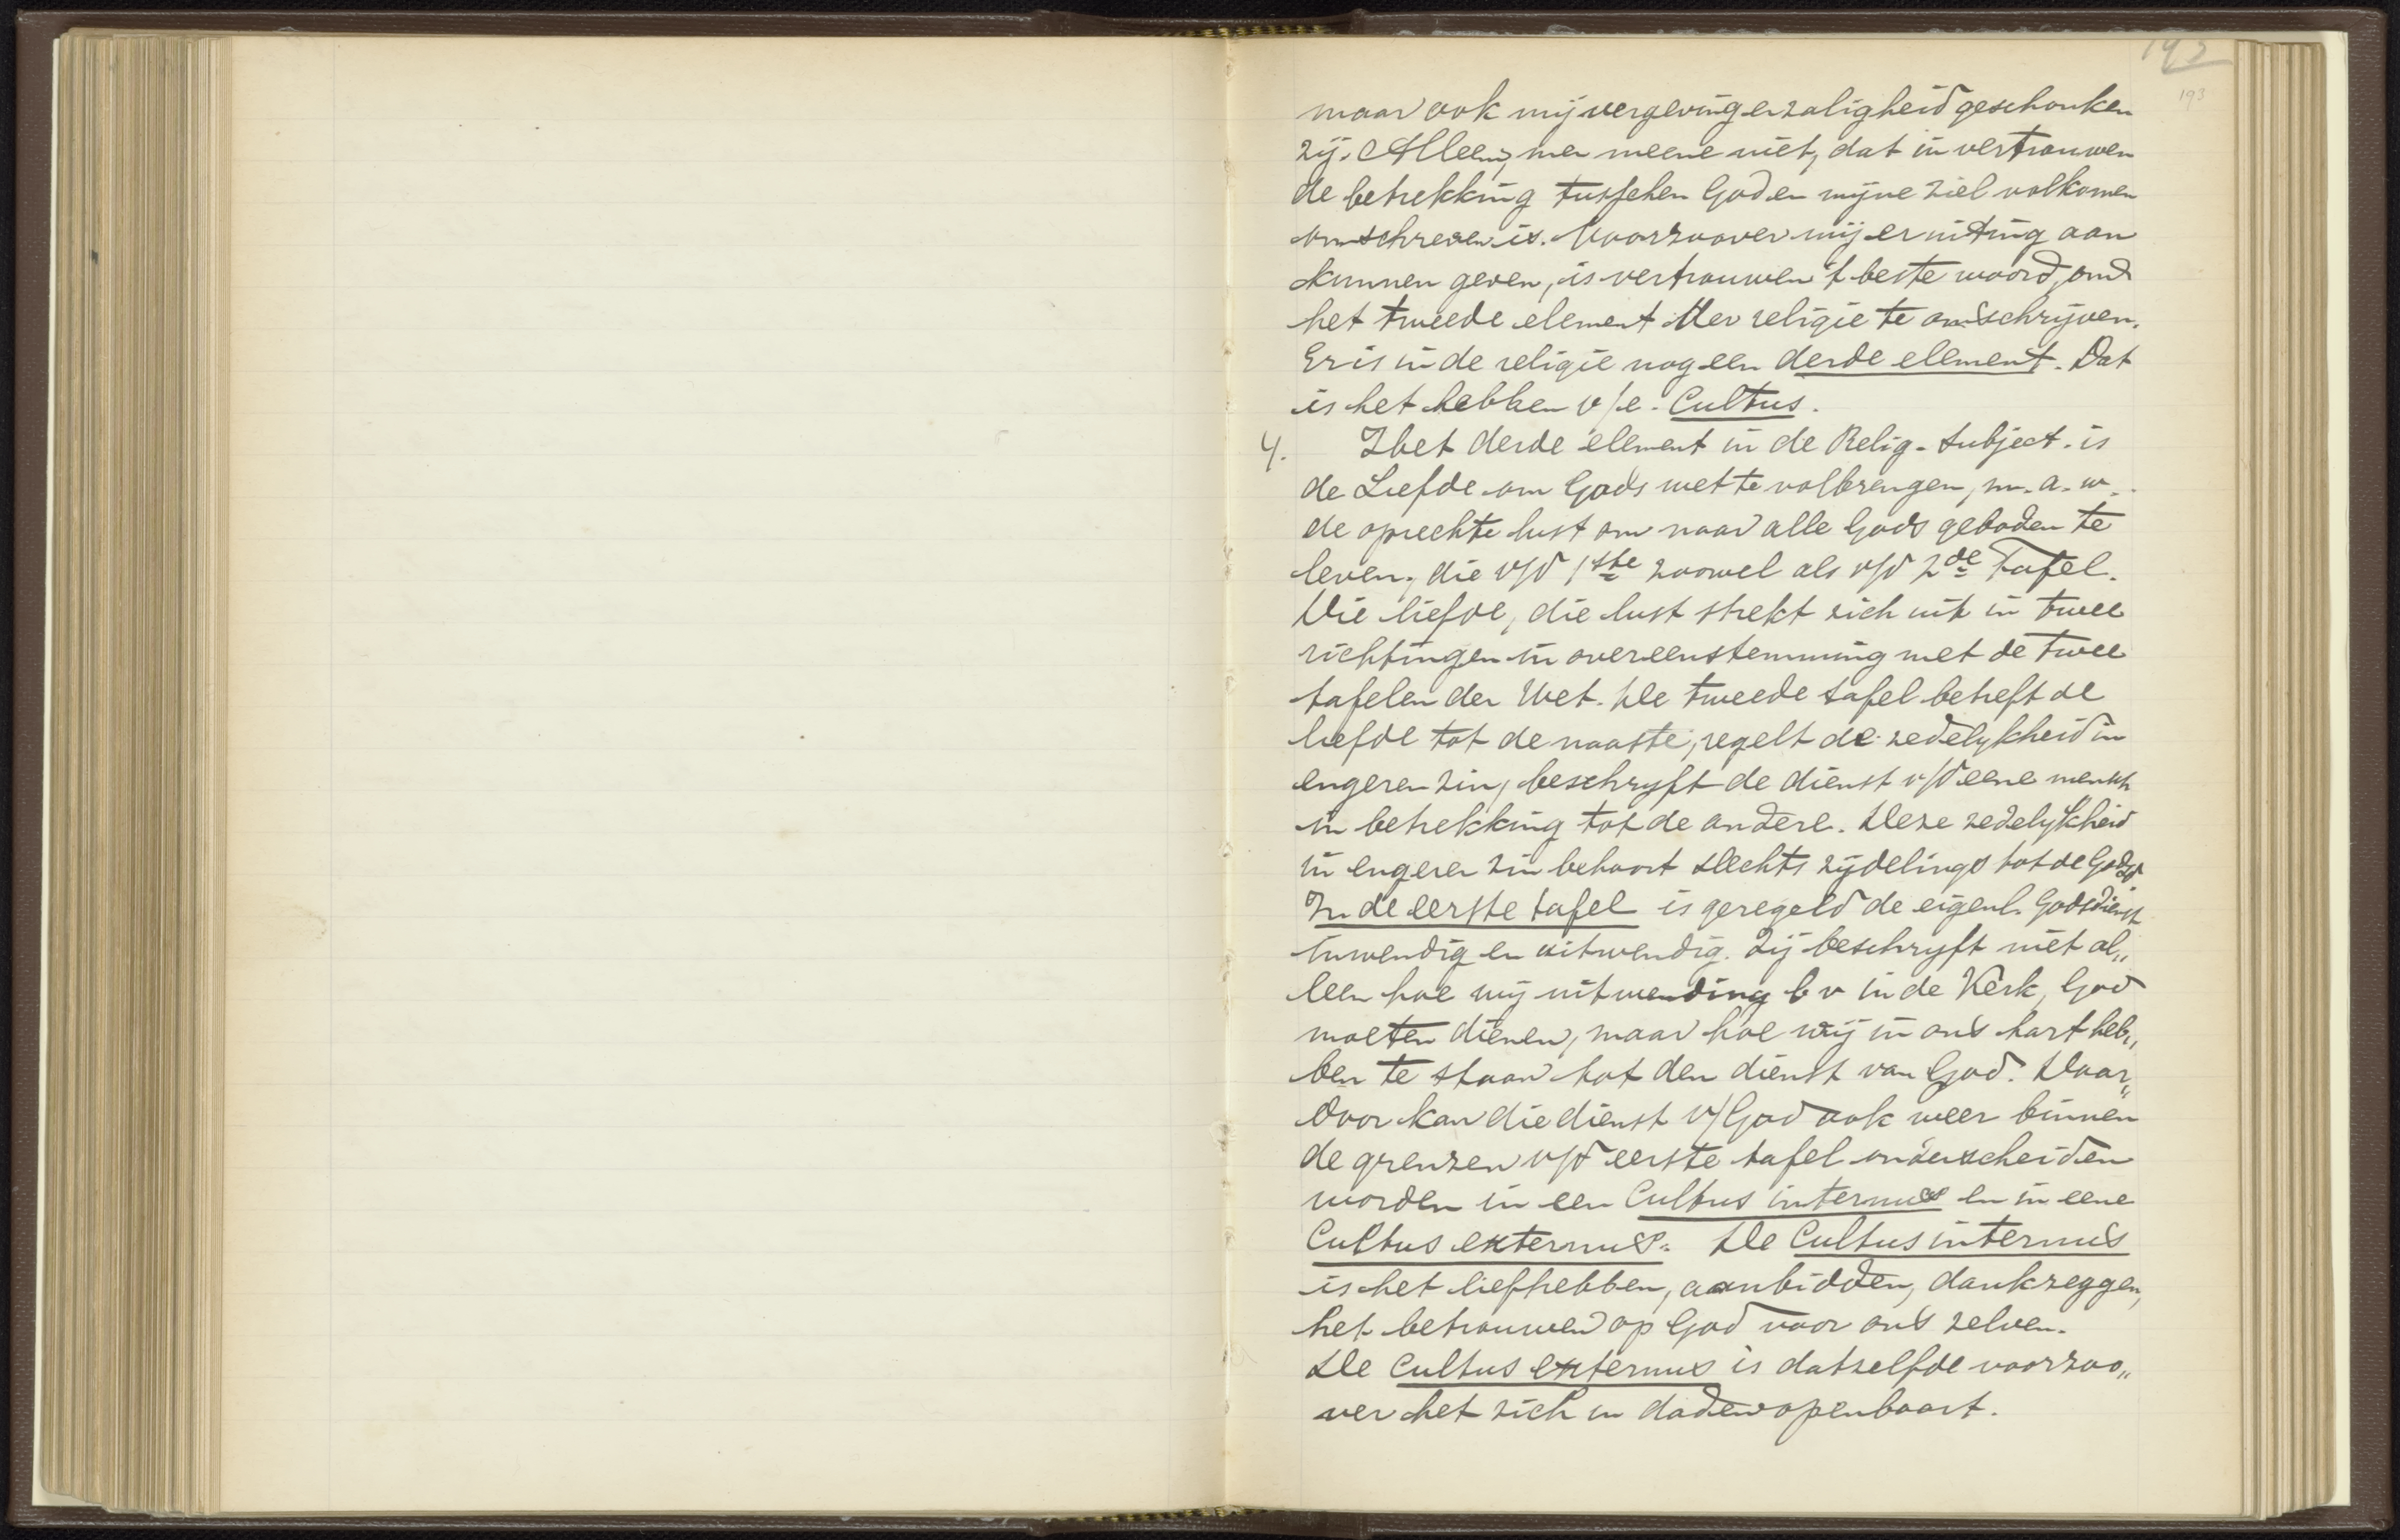 193
193
maar ook mij vergeving en zaligheid geschonken
zij. Alleen, men meene niet, dat in vertrouwen
de betrekking tusschen God en mijne ziel volkomen
omschreven is. Voorzoover wij er uiting aan
kunnen geven, is vertrouwen 't beste woord, om
het tweede element der religie te omschrijven.
Er is in de religie nog een derde element. Dat
is het hebben v/e. Cultus.
4. Het derde element in de Relig. Subject. is
de Liefde om Gods wet te volbrengen, m. a. w.
de oprechte lust om naar alle Gods geboden te
leven, die v/d 1ste zoowel als v/d 2de Tafel.
Die liefde, die lust strekt zich uit in twee
richtingen in overeenstemming met de twee
tafelen der Wet. De tweede tafel betreft de
liefde tot de naaste, regelt de zedelykheid in
engeren zin, beschryft de dienst v/d eene mensch
in betrekking tot de andere. Deze zedelykheid
in engeren zin behoort slechts zydelings tot de Godsd
In de eerste tafel is geregeld de eigenl. Godsdienst
inwendig en uitwendig. Zij beschryft niet al„
leen hoe wij uitwending b v in de Kerk, God
moeten dienen, maar hoe wij in ons hart heb„
ben te staan tot den dienst van God. Daar„
door kan die dienst v/ God ook weer binnen
de grenzen v/d eerste tafel onderscheiden
worden in een Cultus internus en in eene
Cultus externus. De Cultus internus
is het liefhebben, aanbidden, dankzeggen,
het betrouwen op God voor ons zelven.
De Cultus externus is datzelfde voorzoo„
ver het zich in daden openbaart.